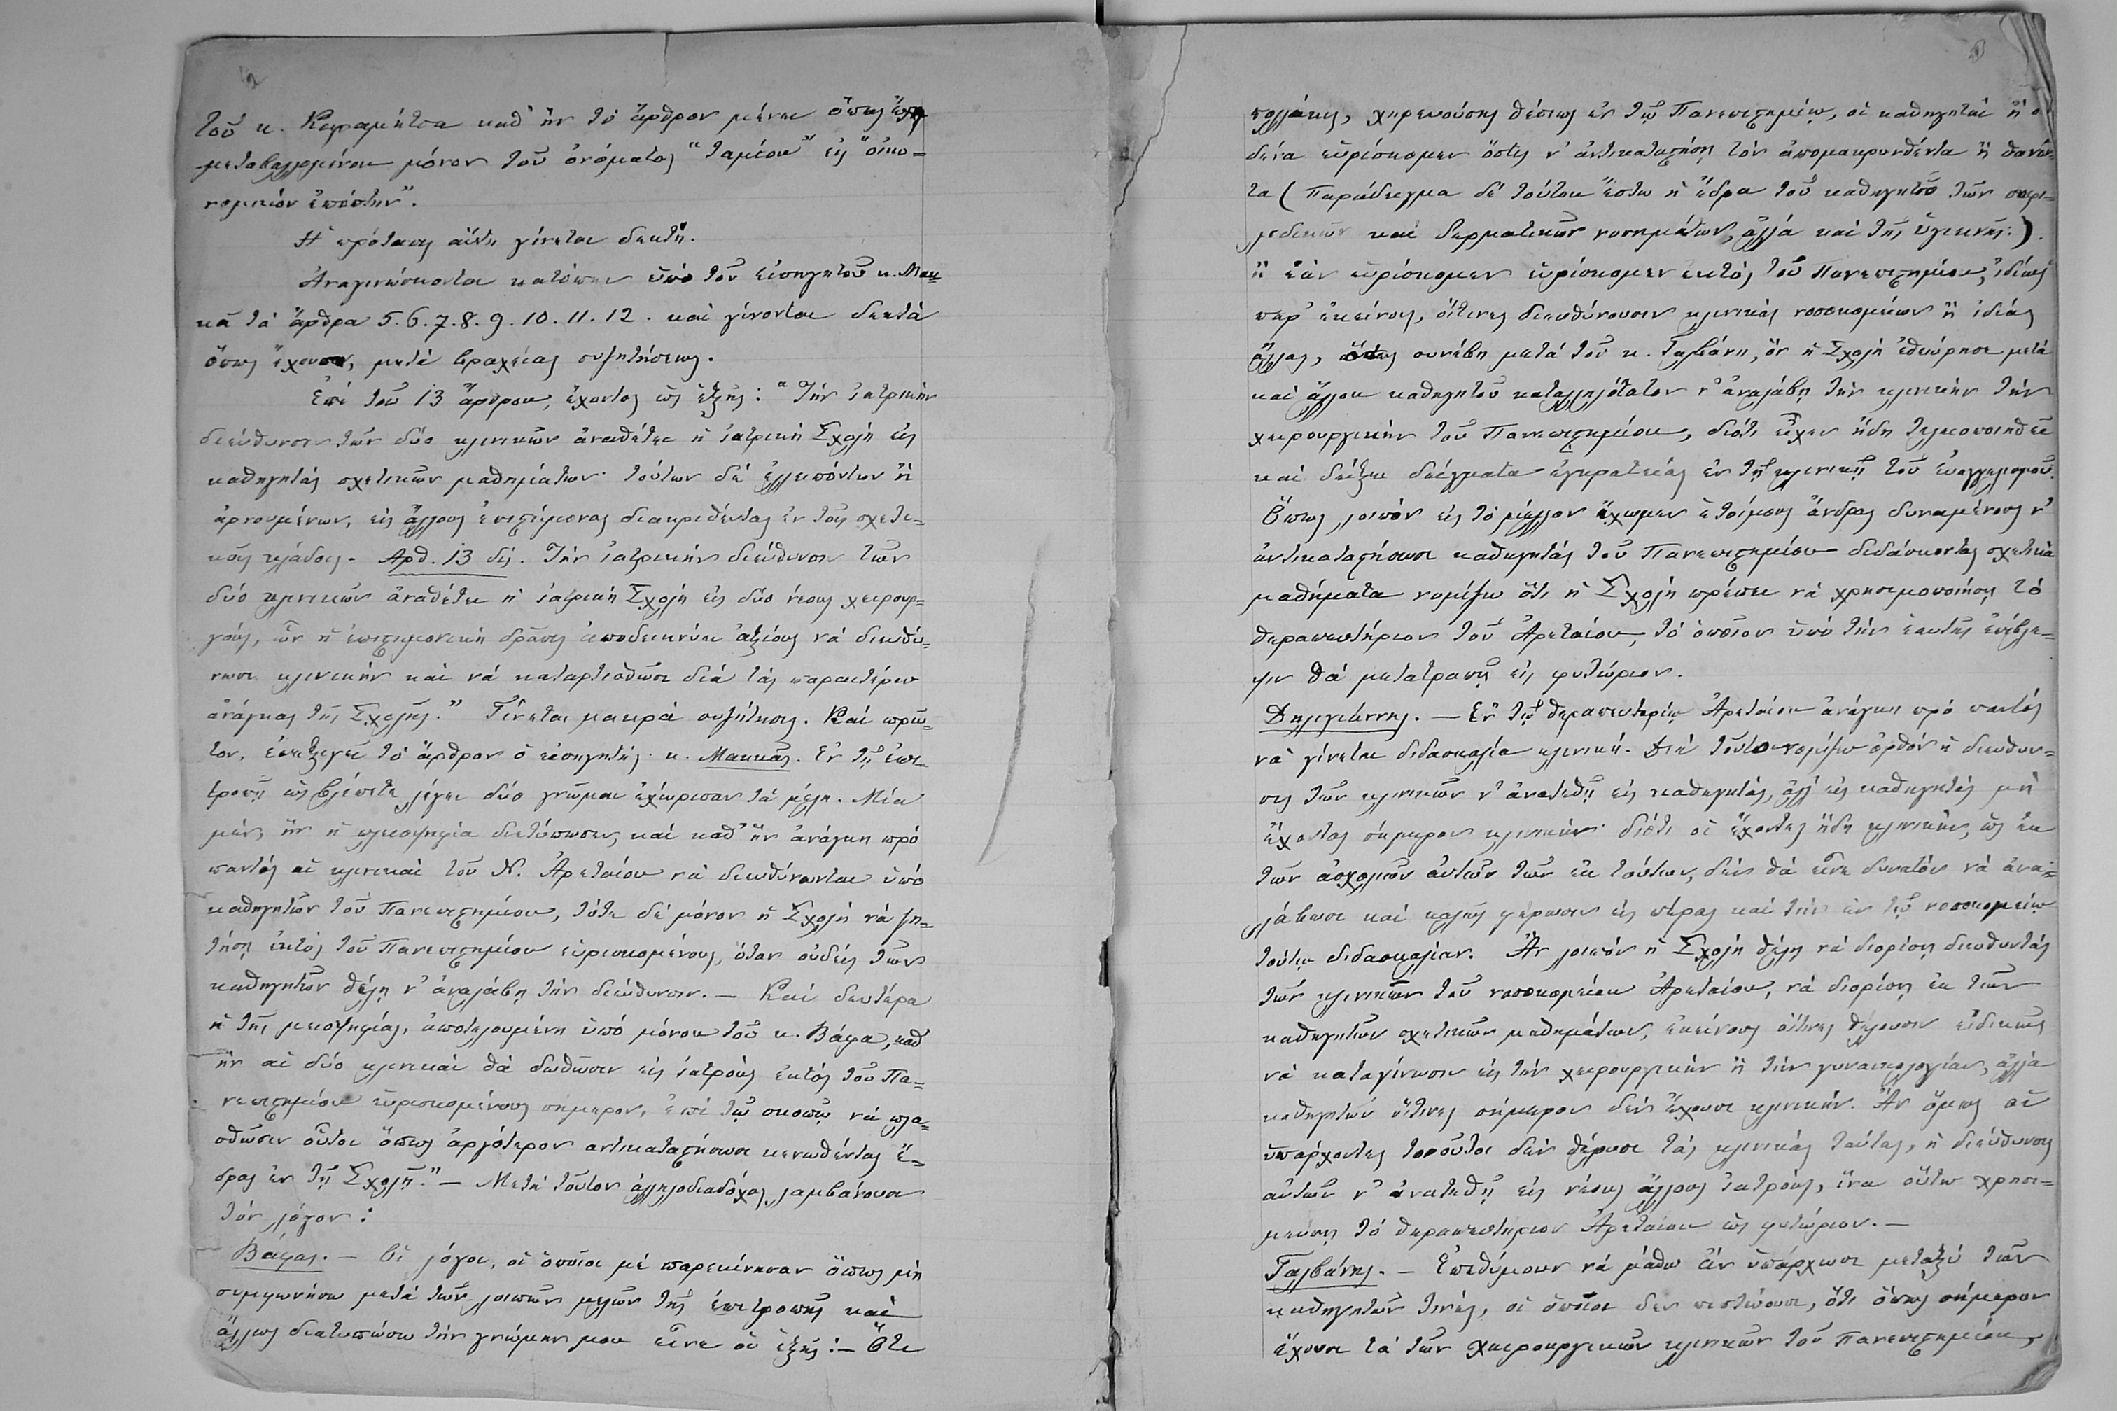 τοῦ κ. Καραμήτσα καθ' ἣν τὸ ἄρθρον μένει ὅπως ἔχει
μεταβαλλομένου μόνον τοῦ ὀνόματος "ταμίου" εἰς "οἰκο-
νομικὸν ἐπόπτην".
Ἡ πρότασις αὕτη γίνεται δεκτή.
Ἀναγινώσκονται κατόπιν ὑπὸ τοῦ εἰσηγητοῦ κ. Μακ-
κᾶ τὰ ἄρθρα 5. 6. 7. 8. 9. 10. 11. 12. καὶ γίνονται δεκτὰ
ὅπως ἔχουσιν, μετὰ βραχείας συζητήσεως.
Ἐπὶ τοῦ 13 ἄρθρου, ἔχοντος ὡς ἑξῆς: "Τὴν ἰατρικὴν
διεύθυνσιν τῶν δύο κλινικῶν ἀναθέτει ἡ ἰατρικὴ Σχολὴ εἰς
καθηγητὰς σχετικῶν μαθημάτων· τούτων δὲ ἐλλειπόντων ἢ
ἀρνουμένων, εἰς ἄλλους ἐπιστήμονας διακριθέντας ἐν τοῖς σχετι-
κοῖς κλάδοις. Αρθ. 13 δίς. Τὴν ἰατρικὴν διεύθυνσιν τῶν
δύο κλινικῶν ἀναθέτει ἡ ἰατρικὴ Σχολὴ εἰς δύο νέους χειρουρ-
γούς, ὧν ἡ ἐπιστημονικὴ δρᾶσις ἀποδεικνύει ἀξίους νὰ διευθύ-
νωσι κλινικὴν καὶ νὰ καταρτισθῶσι διὰ τὰς παραιτέρω
ἀνάγκας τῆς Σχολῆς." Γίνεται μακρὰ συζήτησις. Καὶ πρῶ-
τον, ἐπεξηγεῖ τὸ ἄρθρον ὁ εἰσηγητὴς κ. Μακκᾶς. Ἐν τῇ ἐπι-
τροπῇ ὡς βλέπετε λέγει δύο γνῶμαι ἐχώρισαν τὰ μέλη. Μία
μὲν, ἣν ἡ πλειοψηφία διετύπωσεν, καὶ καθ' ἣν ἀνάγκη πρὸ
παντὸς αἱ κλινικαὶ τοῦ Ν. Ἀρεταίου νὰ διευθύνονται ὑπὸ
καθηγητῶν τοῦ Πανεπιστημίου, τότε δὲ μόνον ἡ Σχολὴ νὰ ζη-
τήσῃ ἐκτὸς τοῦ Πανεπιστημίου εὑρισκομένους, ὅταν οὐδεὶς τῶν
καθηγητῶν θέλῃ ν' ἀναλάβῃ τὴν διεύθυνσιν. — Καὶ δευτέρα
ἡ τῆς μειοψηφίας, ἀποτελουμένη ὑπὸ μόνου τοῦ κ. Βάφα, καθ'
ἣν αἱ δύο κλινικαὶ θὰ δωθῶσιν εἰς ἰατροὺς ἐκτὸς τοῦ Πα-
νεπιστημίου εὑρισκομένους σήμερον, ἐπὶ τῷ σκοπῷ νὰ πλα-
σθῶσιν οὗτοι ὅπως ἀργότερον αντικαταστήσωσι κενωθέντας ἕ-
δρας ἐν τῇ Σχολῇ." — Μετὰ τοῦτον ἀλληλοδιαδόχως λαμβάνουσι
τὸν λόγον:
Βάφας. — Οἱ λόγοι, οἱ ὁποῖοι μὲ παρεκίνησαν ὅπως μὴ
συμφωνήσω μετὰ τῶν λοιπῶν μελῶν τῆς ἐπιτροπῆς καὶ
ἄλλως διατυπώσω τὴν γνώμην μου εἶνε οἱ ἑξῆς: — Ὅτι
πολλάκις, χηρευούσης θέσεως ἐν τῷ Πανεπιστημίῳ, οἱ καθηγηταὶ ἢ οὐ
δένα εὑρίσκομεν ὅστις ν' ἀντικαταστήσῃ τὸν ἀπομακρυνθέντα ἢ θανόν-
τα (Παράδειγμα δὲ τούτου ἔστω ἡ ἕδρα τοῦ καθηγητοῦ τῶν συφι-
λιδικῶν καὶ δερματικῶν νοσημάτων, ἀλλὰ καὶ τῆς ὑγιεινῆς.).
ἢ ἐὰν εὑρίσκομεν εὑρίσκομεν ἐκτὸς τοῦ Πανεπιστημίου, ἰδίως
παρ' ἐκείνοις, οἵτινες διευθύνουσιν κλινικὰς νοσοκομείων ἢ ἰδίας
ἄλλας, ὅπως συνέβη μετὰ τοῦ κ. Γαλβάνη, ὃν ἡ Σχολὴ ἐθεώρησε μετὰ
καὶ ἄλλου καθηγητοῦ καταλληλότατον ν' ἀναλάβῃ τὴν κλινικὴν τὴν
χειρουργικὴν τοῦ Πανεπιστημίου, διότι εἶχεν ἤδη τελειοποιηθεῖ
καὶ δείξει δείγματα ἐγκρατείας ἐν τῇ κλινικῇ τοῦ Εὐαγγελισμοῦ.
Ὅπως λοιπὸν εἰς τὸ μέλλον ἔχωμεν ἑτοίμους ἄνδρας δυναμένους ν'
ἀντικαταστήσωσι καθηγητὰς τοῦ Πανεπιστημίου διδάσκοντας σχετικὰ
μαθήματα νομίζω ὅτι ἡ Σχολὴ πρέπει νὰ χρησιμοποιήσῃ τὸ
θεραπευτήριον τοῦ Ἀρεταίου, τὸ ὁποῖον ὑπὸ τὴν ἑαυτῆς ἐπίβλε-
ψιν θὰ μετατραπῇ εἰς φυτώριον.
Δηλιγιάννης. — Ἐν τῷ θεραπευτηρίῳ Ἀρεταίου ἀνάγκη πρὸ παντὸς
νὰ γίνεται διδασκαλία κλινική. Διὰ τοῦτο νομίζω ὀρθὸν ἡ διευθυν-
σις τῶν κλινικῶν ν' ἀνατεθῇ εἰς καθηγητάς, ἀλλ' εἰς καθηγητὰς μὴ
ἔχοντας σήμερον κλινικήν· διότι οἱ ἔχοντες ἤδη κλινικὴν, ὡς ἐκ
τῶν ἀσχολιῶν αὐτῶν τῶν ἐκ τούτων, δὲν θὰ εἶνε δυνατὸν νὰ ἀνα-
λάβωσι καὶ καλῶς φέρωσιν εἰς πέρας καὶ τὴν ἐν τῷ νοσοκομείῳ
τούτῳ διδασκαλίαν. Ἂν λοιπὸν ἡ Σχολὴ θέλῃ νὰ διορίσῃ διευθυντὰς
τῶν κλινικῶν τοῦ νοσοκομείου Ἀρεταίου, νὰ διορίσῃ ἐκ τῶν
καθηγητῶν σχετικῶν μαθημάτων, ἐκείνους οἵτινες θέλουσιν εἰδικῶς
νὰ καταγίνωσιν εἰς τὴν χειρουργικὴν ἢ τὴν γυναικολογίαν, ἀλλὰ
καθηγητῶν οἵτινες σήμερον δὲν ἔχουσι κλινικήν. Ἂν ὅμως οἱ
ὑπάρχοντες τοιοῦτοι δὲν θέλωσι τὰς κλινικὰς ταύτας, ἡ διεύθυνσις
αὐτῶν ν' ἀνατεθῇ εἰς νέους ἄλλους ἰατρούς, ἵνα οὕτω χρησι-
μεύσῃ τὸ θεραπευτήριον Ἀρεταίου ὡς φυτώριον. —
Γαλβάνης. — Ἐπεθύμουν νὰ μάθω ἂν ὑπάρχωσι μεταξὺ τῶν
καθηγητῶν τινὲς, οἱ ὁποῖοι δὲν πιστεύουσι, ὅτι ὅπως σήμερον
ἔχουσι τὰ τῶν χειρουργικῶν κλινικῶν τοῦ Πανεπιστημίου,